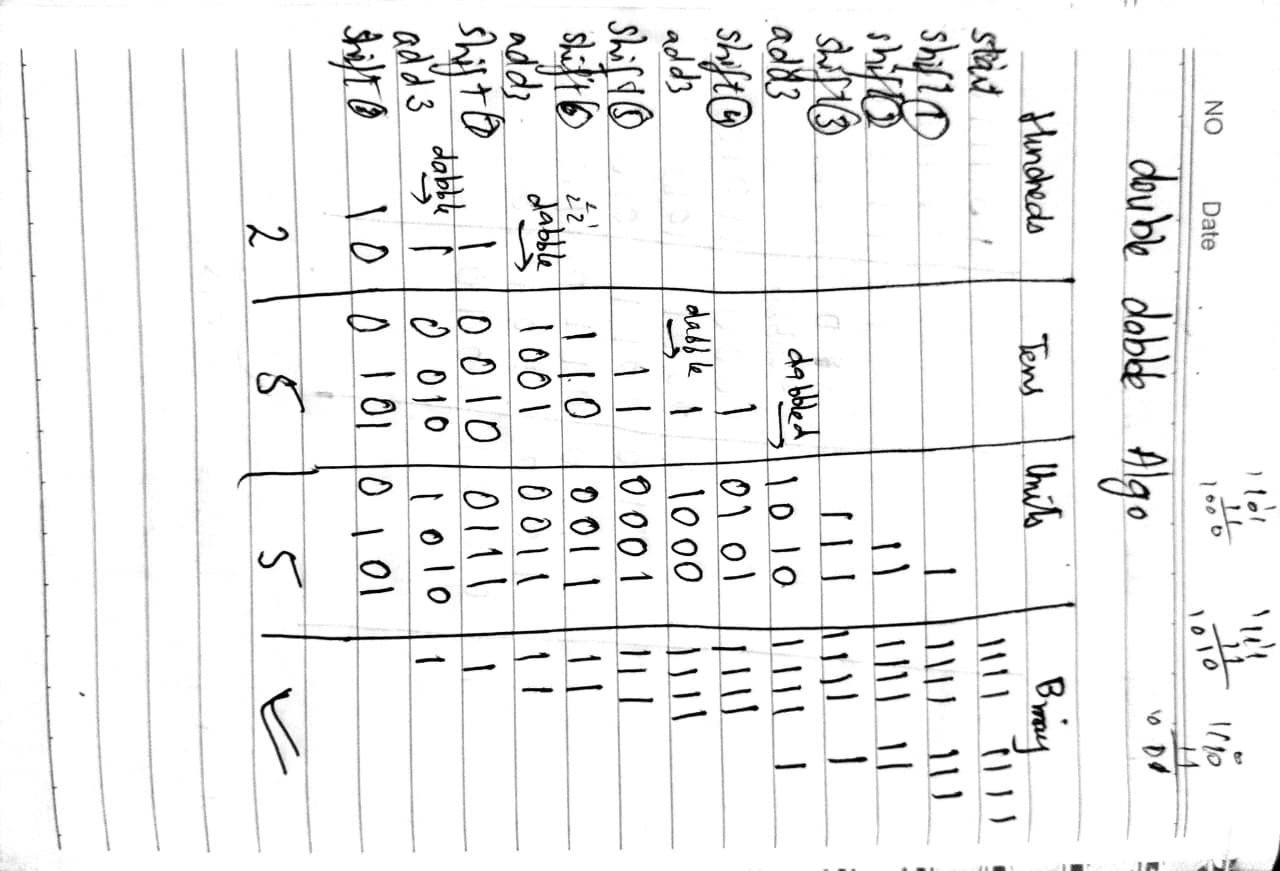 1101
11
1000
111
11
1010
110
11
NO Date
double dabble Algo
Hundreds Tens Units Binary
start 1111 1111
shift 1 1 1111 111
shift 2 11 1111 11
shift 3 111 1111 1
add3 dabbled → 1010 1111 1
shift 4 1 0101 1111
add3 dabble → 1 1000 1111
shift 5 11 0001 111
shift 6 110 0011 11
add3 dabble → 1001 0011 11
shift 7 1 0010 0111 1
add3 dabble → 1 0010 1010 1
shift 8 10 0101 0101
2 5 5 ✓